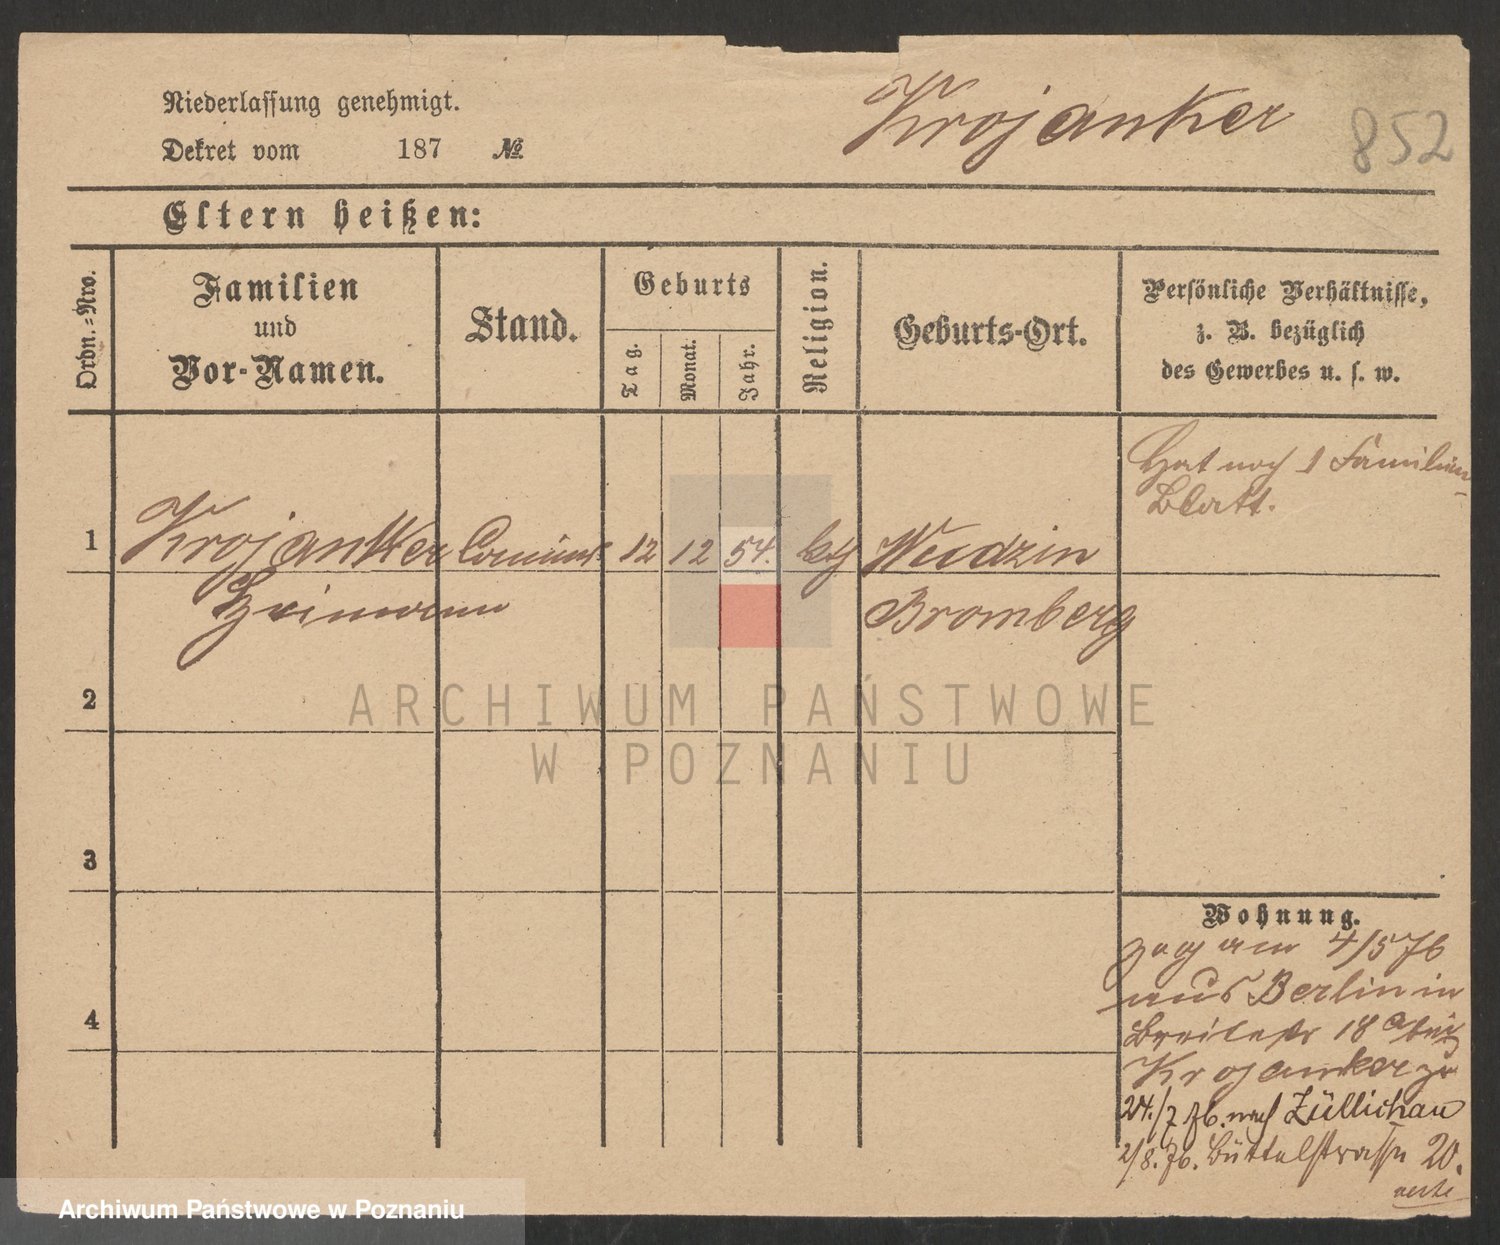 Niederlassung genehmigt.
Krojanker
852
Dekret vom 187 №
Eltern heißen:
Ordn.-Nro.
Familien
und
Vor-Namen.
Stand.
Geburts
Tag.
Monat.
Jahr.
Religion.
Geburts-Ort.
Persönliche Verhältnisse,
z. B. bezüglich
des Gewerbes u. s. w.
Hat noch 1 Familien-
Blatt.
1 Krojanker 12 12 54. Wudzin
Heimann Bromberg
2
3
4
Wohnung.
zog am 4/5 76
aus Berlin in
Breitestr 18 bei
Krojanker zu
24./7 76. nach Züllichau
2/8. 76. Büttelstrasse 20.
ARCHIWUM PAŃSTWOWE
W POZNANIU
Archiwum Państwowe w Poznaniu